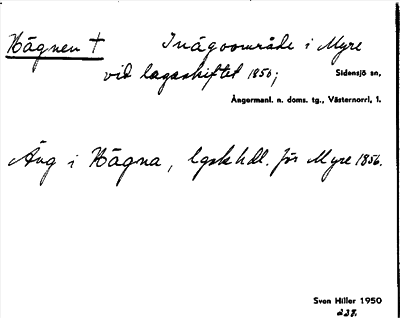 Hägnen † Inägoområde i Myre
vid lagaskiftet 1850; Sidensjö sn,
Ångermanl. n. doms. tg., Västernorrl. l.
Äng i Hägna, lgskhdl. för Myre 1856.
Sven Hiller 1950
237.